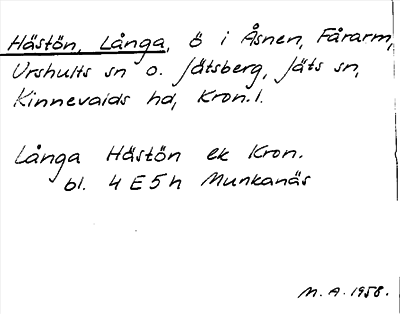 Hästön, Långa, ö i Åsnen, Fårarm,
Urshults sn o. Jätsberg, Jäts sn,
Kinnevalds hd, Kron.l.
Långa Hästön ek Kron.
bl. 4 E 5 h Munkanäs
M. A. 1958.